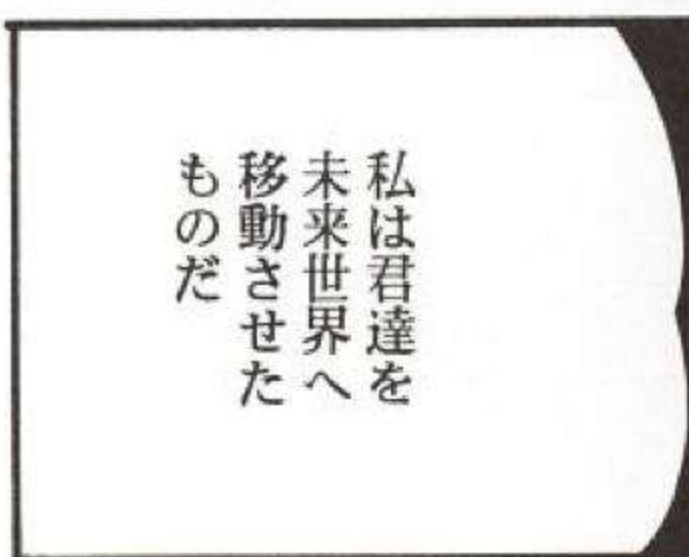 私は君達を
未来世界へ
移動させた
ものだ